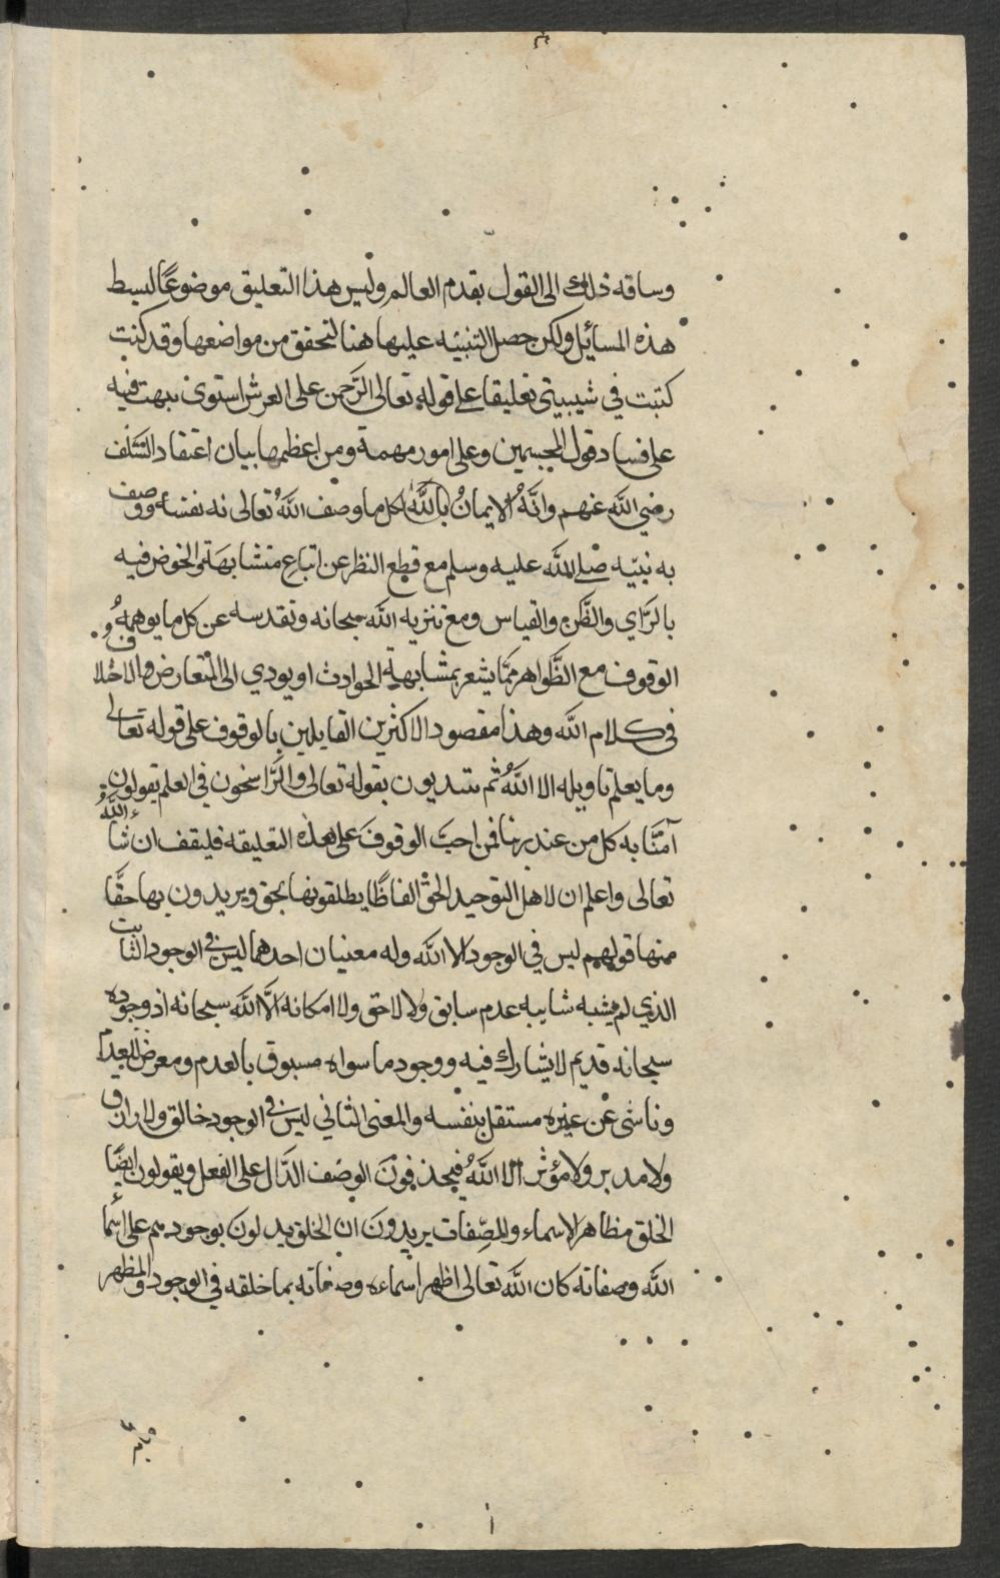 وساقه ذلك الى القول بقدم العالم وليس هذا التعليق موضوعًا لبسط
هذه المسائل ولكن حصل التنبيه عليها هنا لتحقق من مواضعها وقد كنت
كتبت في شيبيتى تعليقا على قوله تعالى الرحمن على العرش استوى نبهت فيه
على فساد قول المجسمين وعلى امور مهمة ومن اعظمها بيان اعتقاد السلف
رضي الله عنهم وانه الايمان بالله بكل ما وصف الله تعالى به نفسه ووصف
به نبيّه صلى الله عليه وسلم مع قطع النظر عن اتباع متشابهه والخوض فيه
بالرّاي والظّن والقياس ومع تنزيه الله سبحانه وتقدسه عن كل ما يوهمه
الوقوف مع الظّواهر ممّا يشعر بمشابهة الحوادث او يودي الى التعارض والاختلاف
فى كلام الله وهذا مقصود الاكثرين القايلين بالوقوف على قوله تعالى
وما يعلم تاويله الا الله ثم يبتديون بقوله تعالى والرّاسخون في العلم يقولون
آمنّا به كل من عند ربنا فمن احبّ الوقوف على هذه التعليقة فليقف ان شاء الله
تعالى واعلم ان لاهل التوحيد الحقّ الفاظًا يطلقونها بحق ويريدون بها حقًّا
منها قولهم ليس في الوجود الا الله وله معنيان احدهما ليس في الوجود الثابت
الذي لم يشبه شايبه عدم سابق ولا لاحق ولا امكانه الّا الله سبحانه اذ وجوده
سبحانه قديم لا يشارك فيه ووجود ما سواه مسبوق بالعدم ومعرض للعدم
وناشى عن غيره مستقل بنفسه والمعنى الثاني ليس في الوجود خالق ولا رازق
ولا مدبر ولا مؤثر الا الله فيحذفون الوصف الدّال على الفعل ويقولون ايضًا
الخلق مظاهر الاسماء والصّفات يريدون ان الخلق يدلون بوجودهم على اسما
الله وصفاته كان الله تعالى اظهر اسماءه وصفاته بما خلقه في الوجود والمظهر